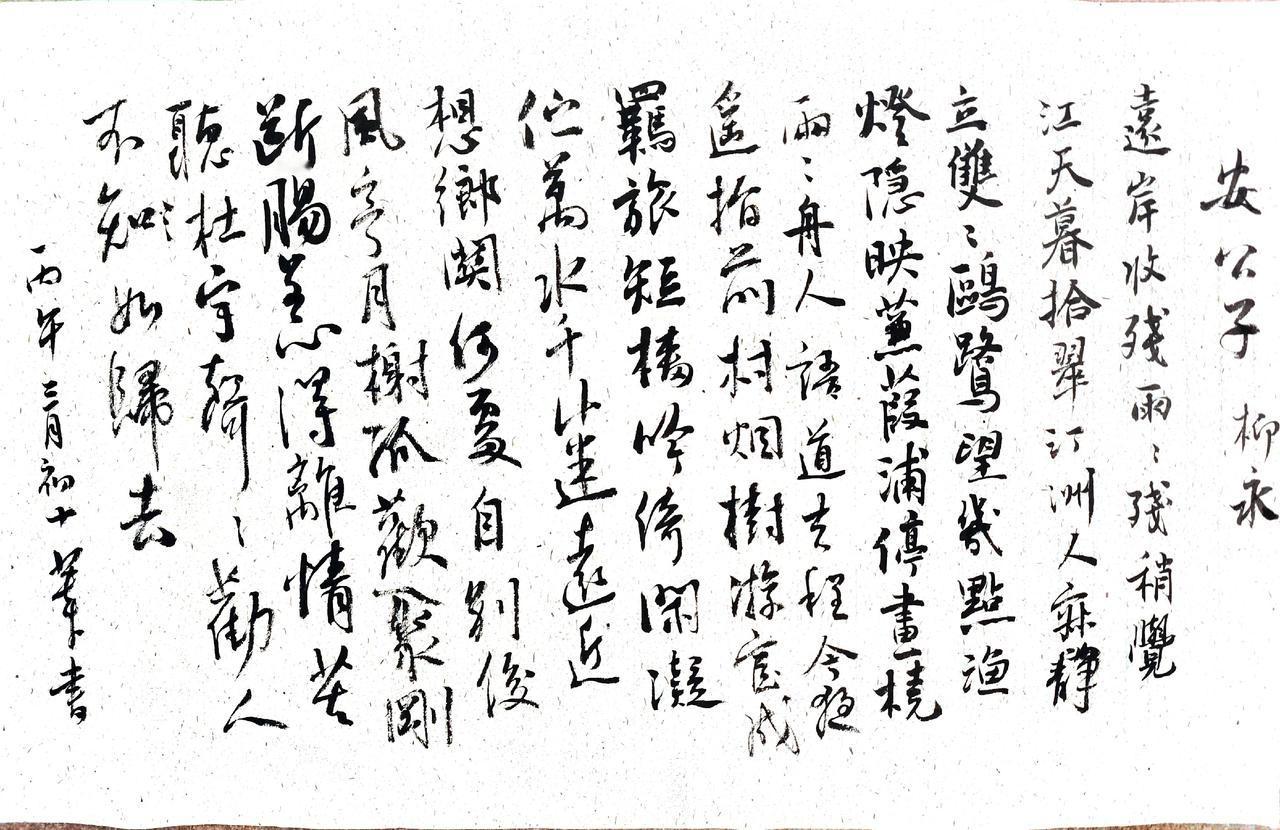 安公子 柳永
遠岸收殘雨雨殘稍覺
江天暮拾翠汀洲人寂靜
立雙雙鷗鷺望幾點漁
燈隐映蒹葭浦停畫橈
兩兩舟人語道去程今夜
遥指前村烟樹游宦成
羈旅短檣吟倚閑凝
佇萬水千山迷遠近
想鄉關何處自別後
風亭月榭孤歡聚剛
斷腸惹得離情苦
聽杜宇聲聲勸人
不如歸去
丙午三月初十 書